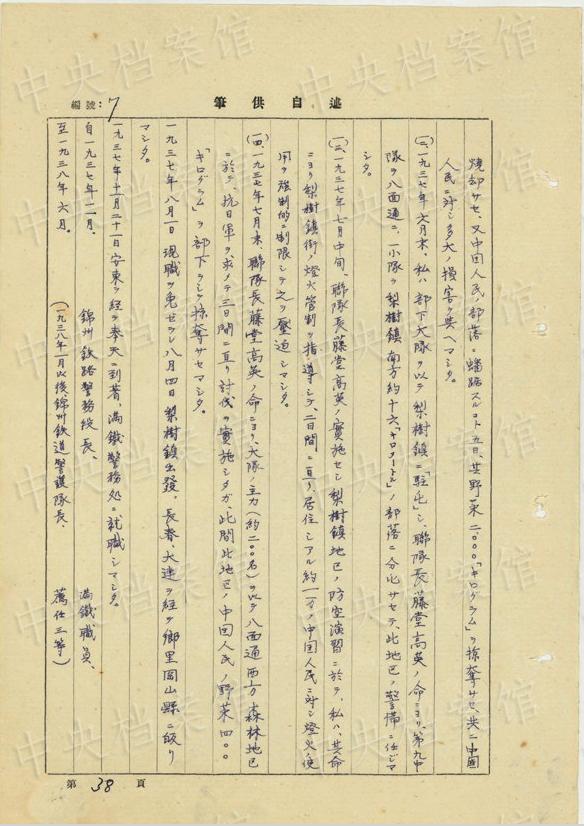 編號：7
筆供自述
燒却サセ、又中国人民ノ部落ニ蟠踞スルコト五日、其野菜二.〇〇〇「キログラム」ヲ掠奪サセ、共ニ中国
人民ニ対シ多大ノ損害ヲ与ヘマシタ。
一九三七年六月末、私ハ部下大隊ヲ以テ梨樹鎮ニ駐屯シ、聯隊長藤堂高英ノ命ニヨリ、第九中
隊ヲ八面通ニ、一小隊ヲ梨樹鎮南方約十六「キロメートル」ノ部落ニ分屯サセテ、此地区ノ警備ニ任ジマ
シタ。
一九三七年七月中旬、聯隊長藤堂高英ノ実施セシ梨樹鎮地区ノ防空演習ニ於テ、私ハ、其命
ニヨリ梨樹鎮街ノ燈火管制ヲ指導シテ、二日間ニ亘リ、居住シアル約一万ノ中国人民ニ対シ燈火ノ使
用ヲ強制的ニ制限シテ之ヲ圧迫シマシタ。
一九三七年七月末、聯隊長藤堂高英ノ命ニヨリ、大隊ノ主力（約二〇〇名）ヲ以テ八面通西方森林地区
ニ於テ、抗日軍ヲ求メテ三日間ニ亘リ討伐ヲ実施シタガ、此間此地区ノ中国人民ノ野菜四〇〇
「キログラム」ヲ部下ヲシテ掠奪サセマシタ。
一九三七年八月一日現職ヲ免ゼラレ八月四日梨樹鎮出發、長春、大連ヲ経テ郷里岡山縣ニ皈リ
マシタ。
一九三七年十一月二十一日安東ヲ経テ奉天ニ到著、満鉄警務処ニ就職シマシタ。
自一九三七年十一月、
至一九三八年六月。
錦州鉄路警務段長、
（一九三八年一月以後、錦州鉄道警護隊長、
満鉄職員、
薦任三等）
第 38 頁
中央档案馆